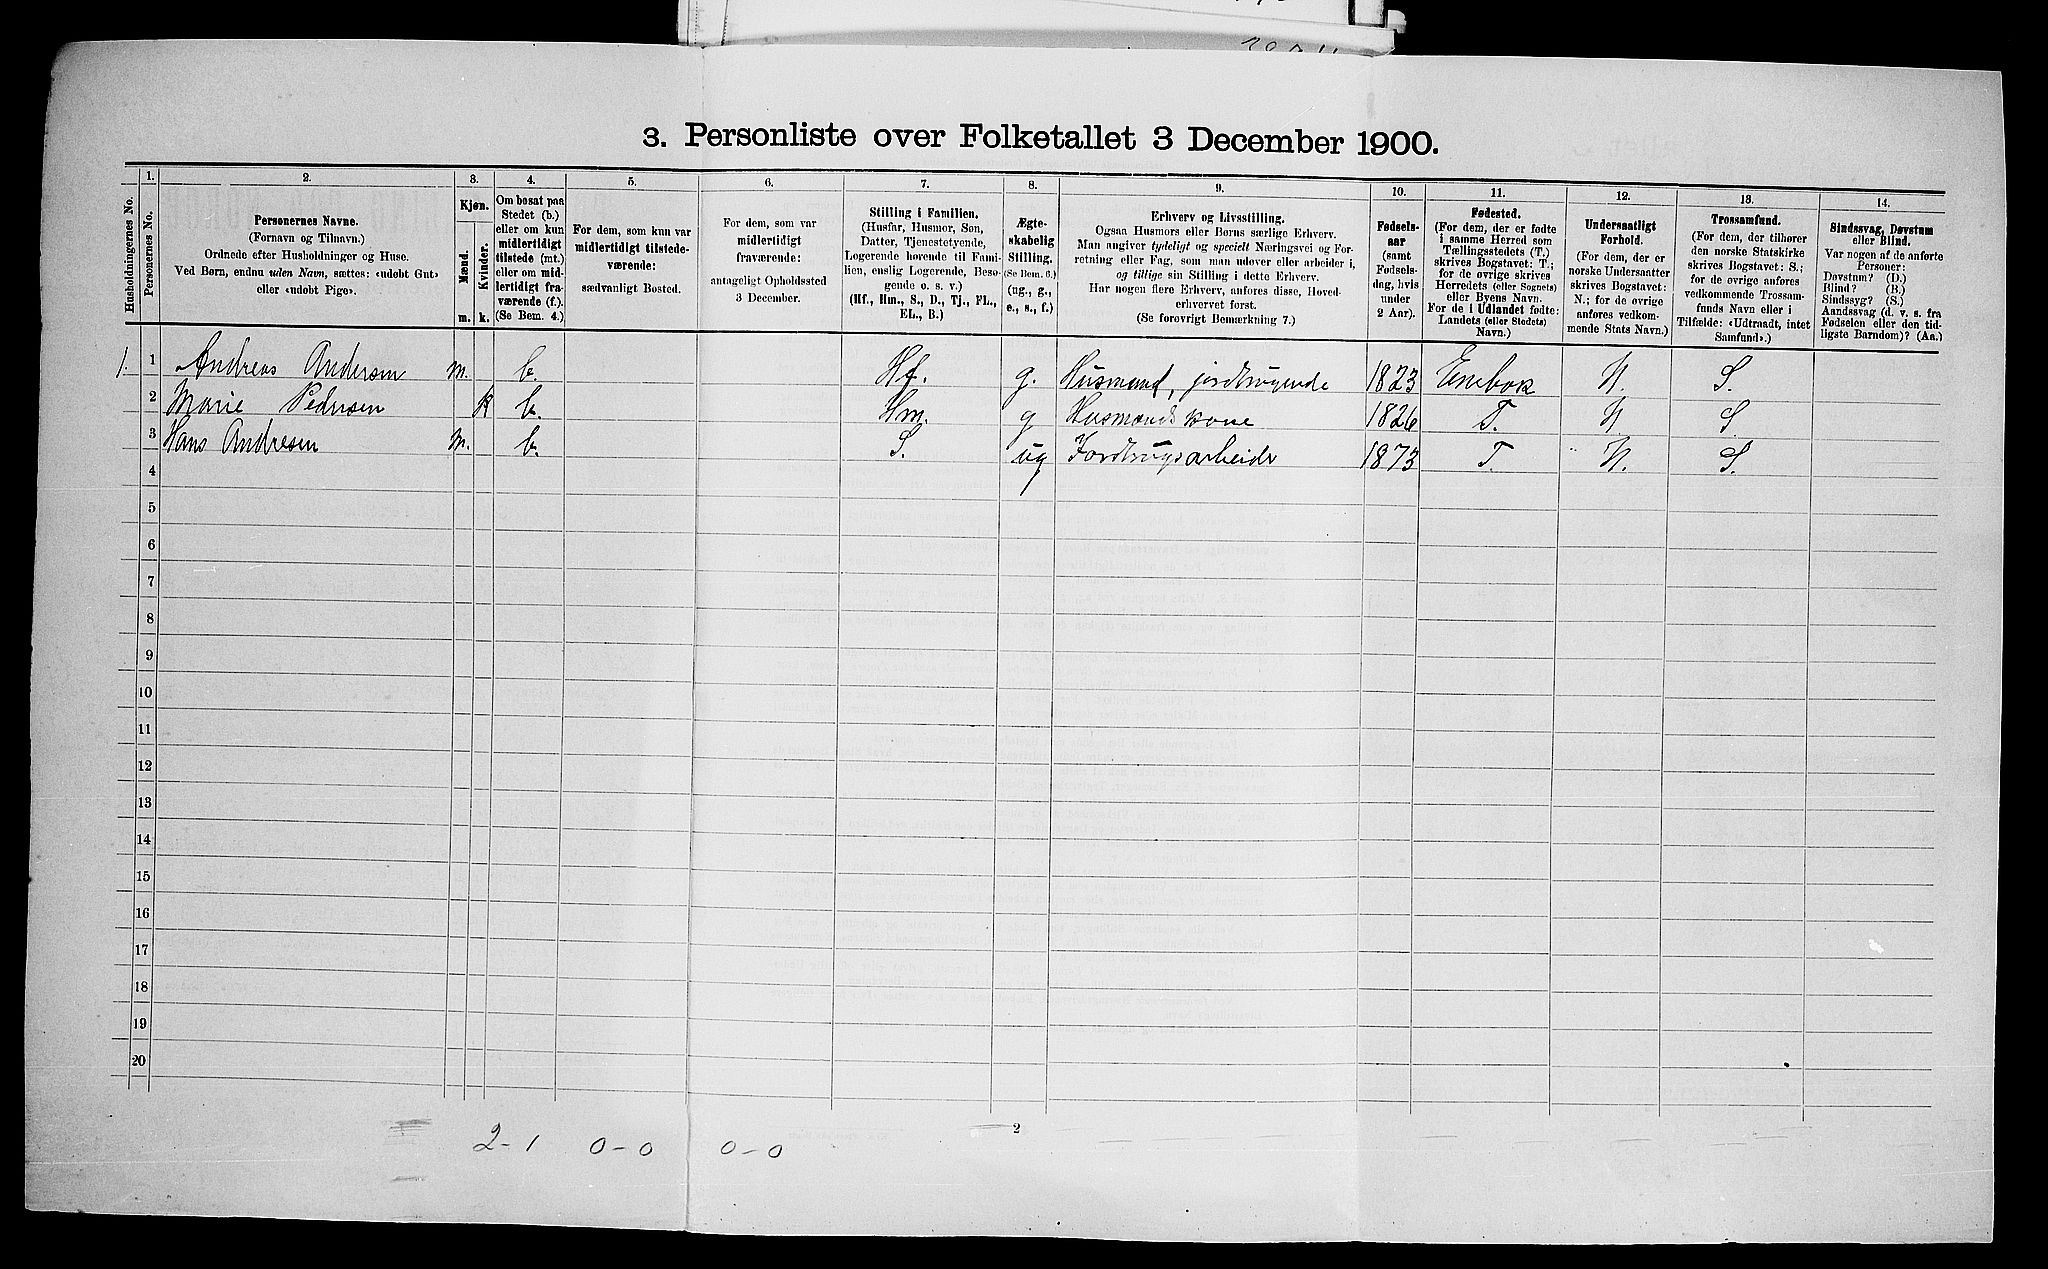 3. Personliste over Folketallet 3 December 1900.
Husholdningernes No.
1.
Personernes No.
2.
Personernes Navne.
(Fornavn og Tilnavn.)
Ordnede efter Husholdninger og Huse.
Ved Børn, endnu uden Navn, sættes: «udøbt Gut»
eller «udøbt Pige».
3.
Kjøn.
Mænd.
Kvinder.
m. k.
4.
Om bosat paa
Stedet (b.)
eller om kun
midlertidigt
tilstede (mt.)
eller om mid-
lertidigt fra-
værende (f.).
(Se Bem. 4.)
5.
For dem, som kun var
midlertidigt tilstede-
værende:
sædvanligt Bosted.
6.
For dem, som var
midlertidigt
fraværende:
antageligt Opholdssted
3 December.
7.
Stilling i Familien.
(Husfar, Husmor, Søn,
Datter, Tjenestetyende,
Logerende hørende til Fami-
lien, enslig Logerende, Besø-
gende o. s. v.)
(Hf., Hm., S., D., Tj., FL.,
EL., B.)
8.
Ægte-
skabelig
Stilling.
(Se Bem. 6.)
(ug., g.,
e., s., f.)
9.
Erhverv og Livsstilling.
Ogsaa Husmors eller Børns særlige Erhverv.
Man angiver tydeligt og specielt Næringsvei og For-
retning eller Fag, som man udøver eller arbeider i,
og tillige sin Stilling i dette Erhverv.
Har nogen flere Erhverv, anføres disse, Hoved-
erhvervet først.
(Se forøvrigt Bemærkning 7.)
10.
Fødsels-
aar
(samt
Fødsels-
dag, hvis
under
2 Aar).
11.
Fødested.
(For dem, der er fødte
i samme Herred som
Tællingsstedets (T.)
skrives Bogstavet: T.;
for de øvrige skrives
Herredets (eller Sognets)
eller Byens Navn.
For de i Udlandet fødte:
Landets (eller Stedets)
Navn.)
12.
Undersaatligt
Forhold.
(For dem, der er
norske Undersaatter
skrives Bogstavet:
N.; for de øvrige
anføres vedkom-
mende Stats Navn.)
13.
Trossamfund.
(For dem, der tilhører
den norske Statskirke
skrives Bogstavet: S.;
for de øvrige anføres
vedkommende Trossam-
funds Navn eller i
Tilfælde: «Udtraadt, intet
Samfund».)
14.
Sindssvag, Døvstum
eller Blind.
Var nogen af de anførte
Personer:
Døvstum? (D.)
Blind? (B.)
Sindssyg? (S.)
Aandssvag (d. v. s. fra
Fødselen eller den tid-
ligste Barndom)? (Aa.)
1. 1 Andreas Andersen m. b. Hf. g. Husmand, jordbrugende 1823 Enebak N. S.
2 Marie Pedersen k b. Hm. g Husmands kone 1826 T. N. S
3 Hans Andresen m. b. S. ug Jordbrugsarbeide 1873 T. N. S.
4
5
6
7
8
9
10
11
12
13
14
15
16
17
18
19
20
2-1 0-0 0-0
2